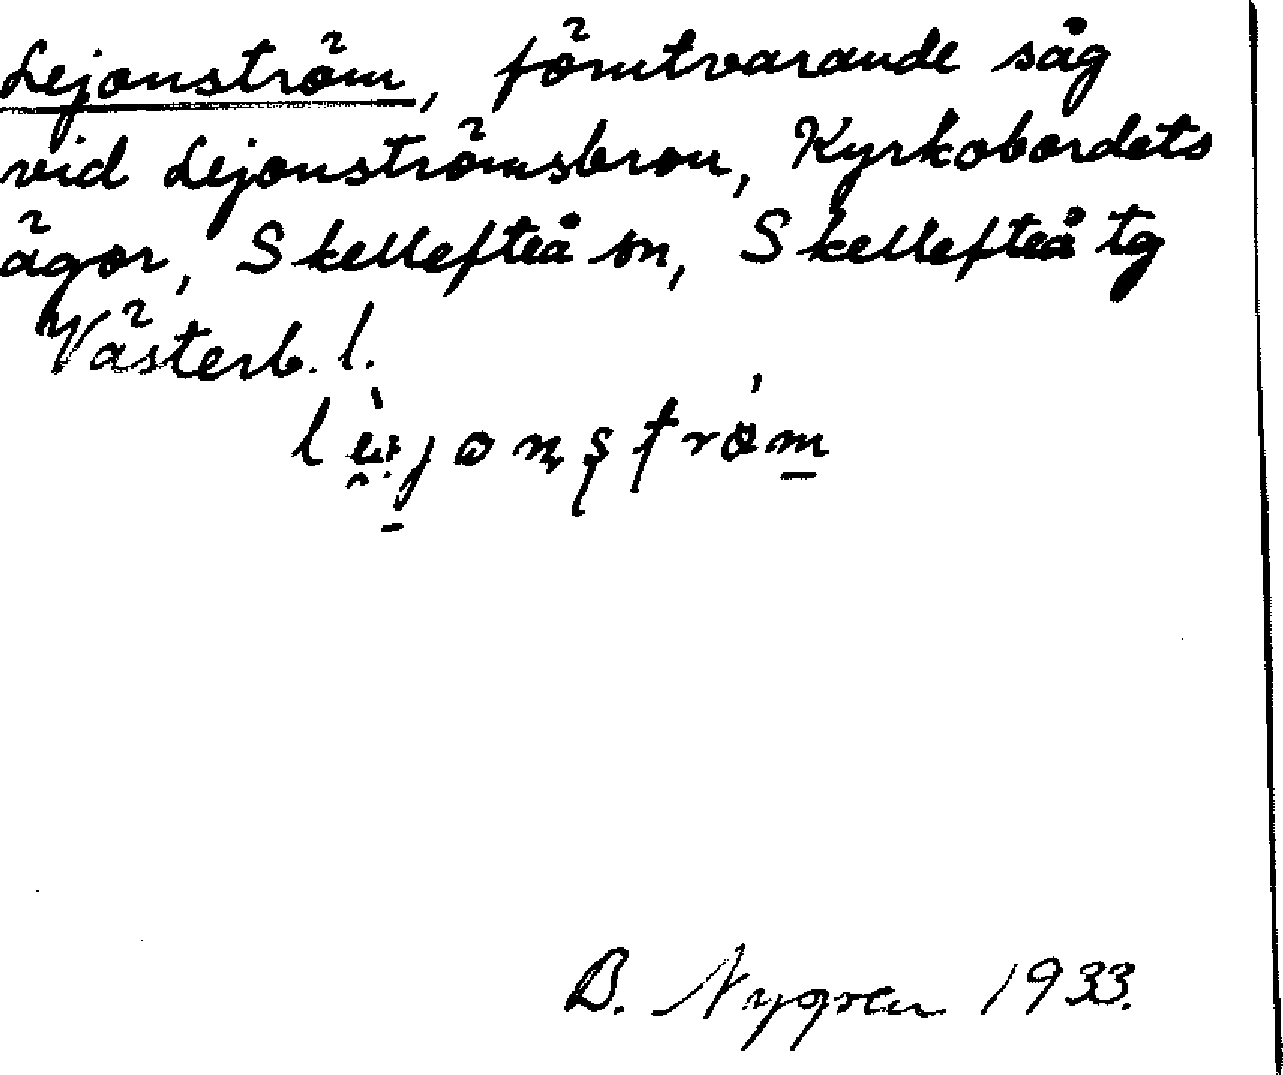 Lejonström, förutvarande såg
vid Lejonströmsbron, Kyrkobordets
ägor, Skellefteå sn, Skellefteå tg
Västerb. l.
B. Nygren 1933.